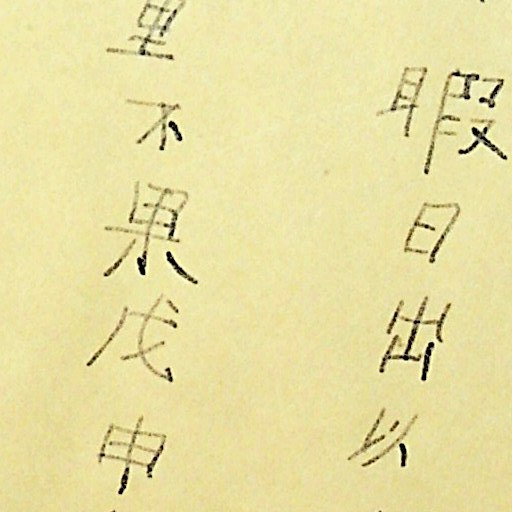 暇日出以
里不果戊申